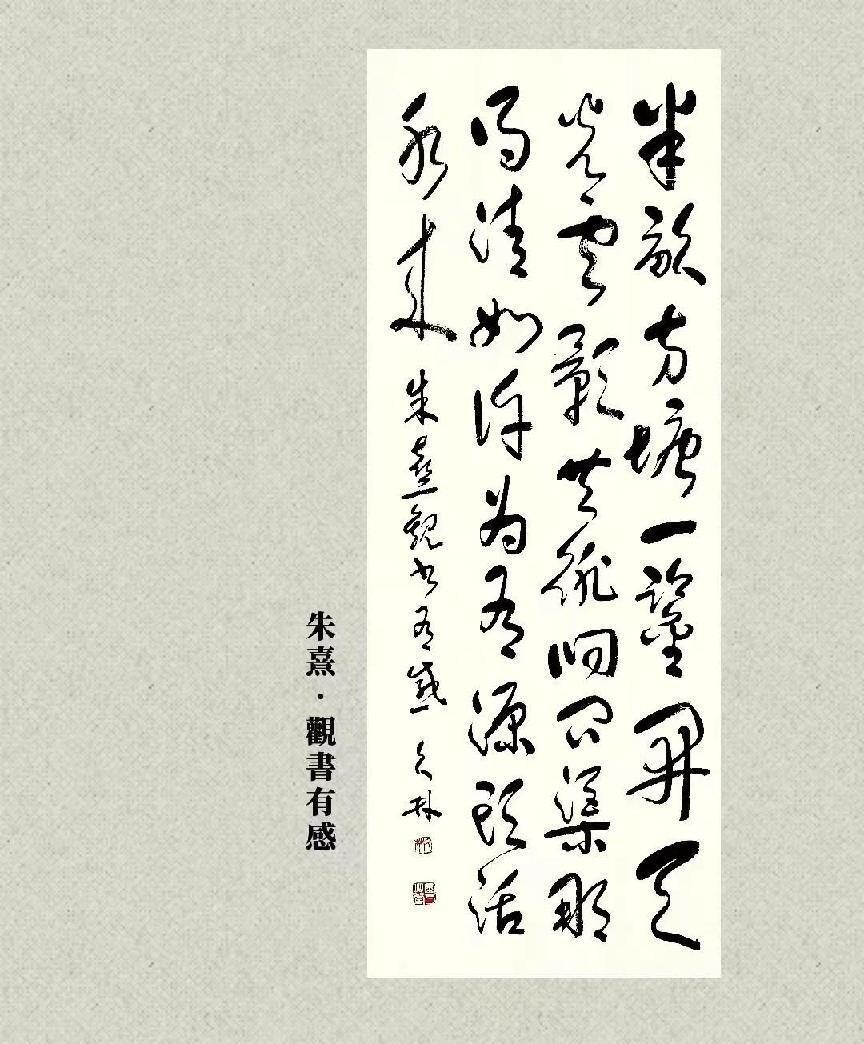 半畝方塘一鑒開天
光雲影共徘徊問渠那
得清如許為有源頭活
水來 朱熹觀書有感
朱熹·觀書有感